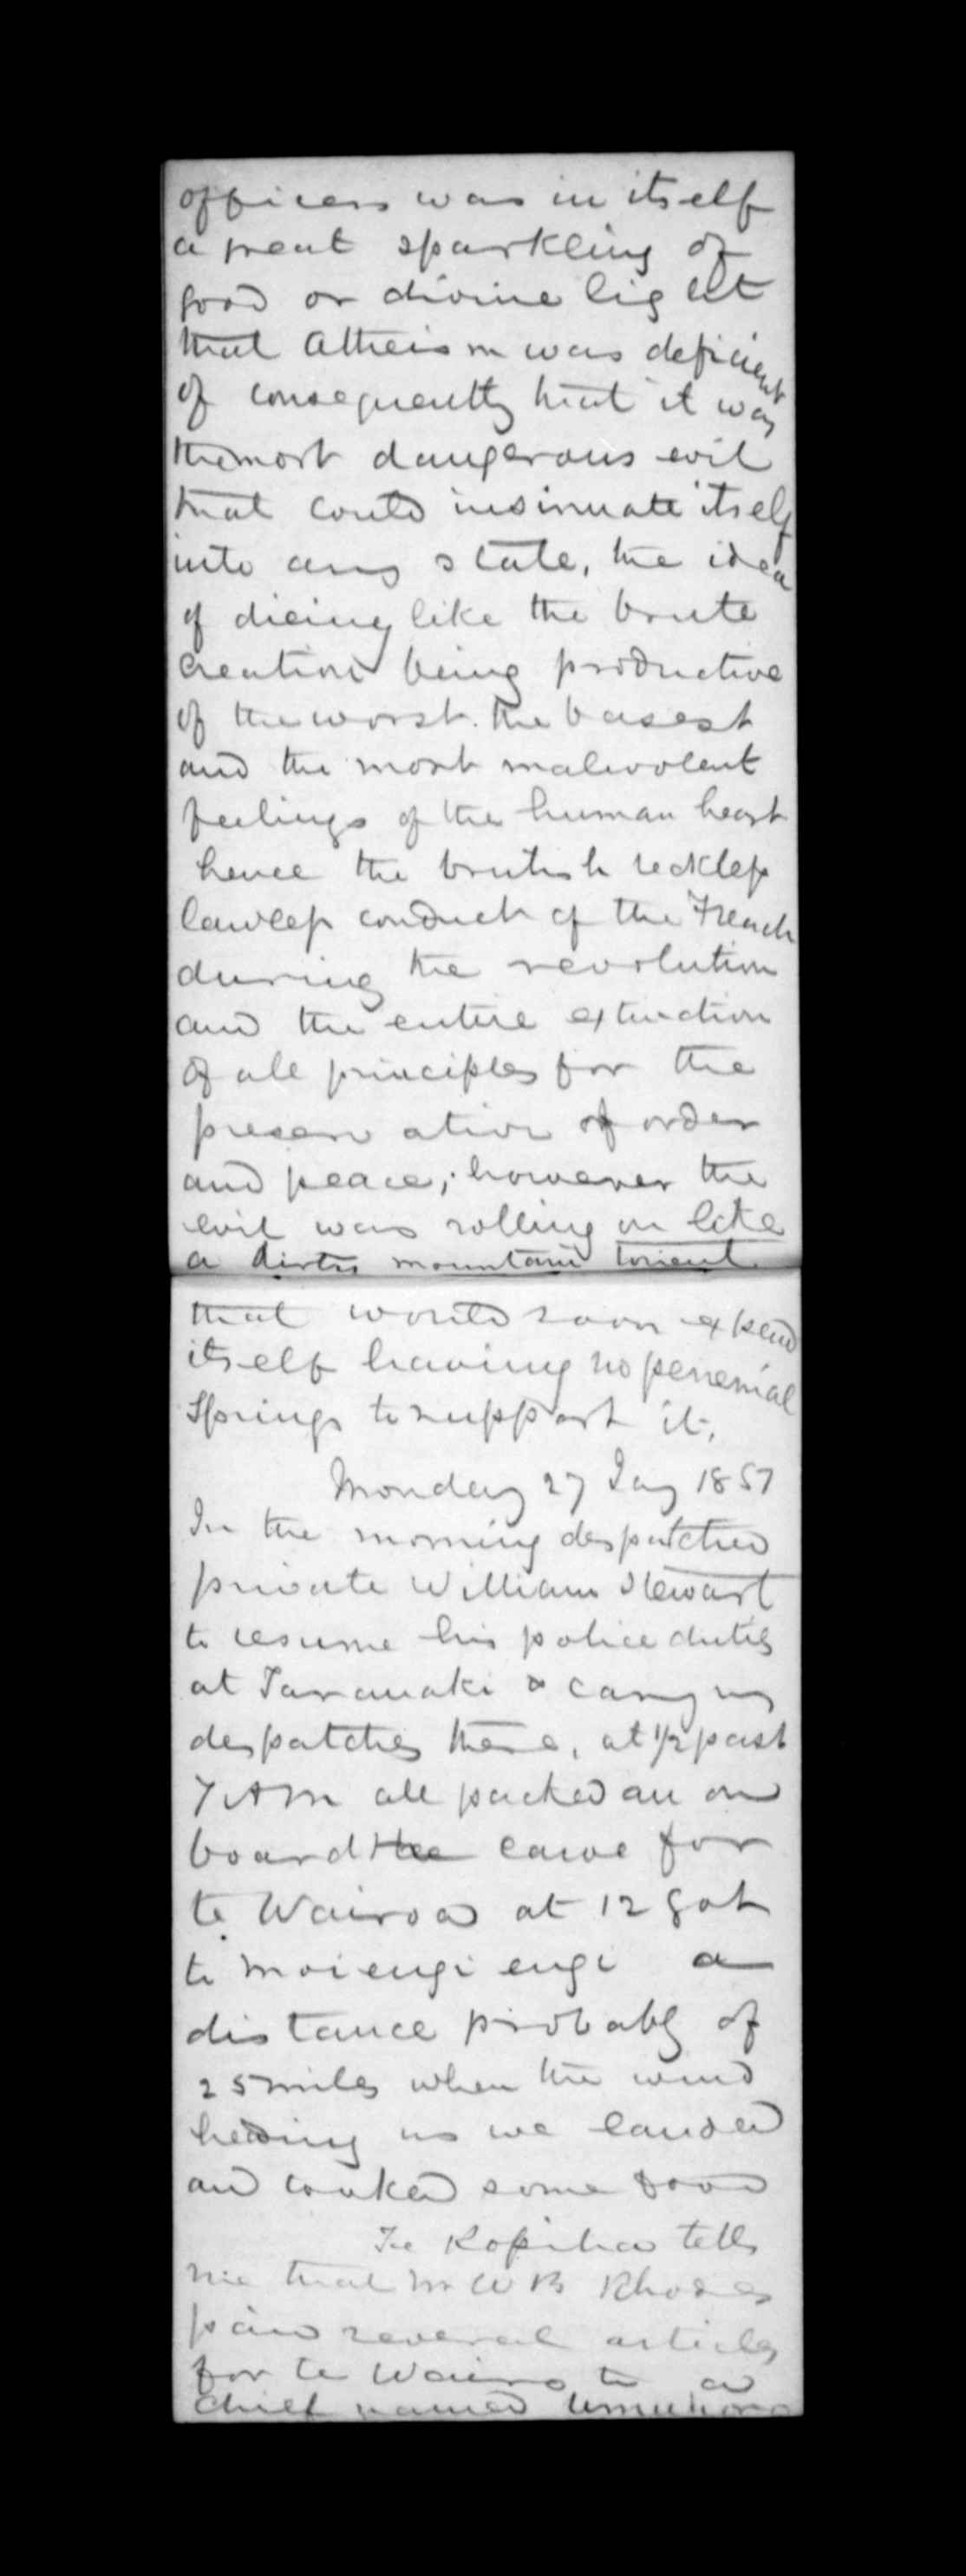 officers was in itself
a great sparkling of
good or divine light
that Atheism was deficient
of consequently that it was
the most dangerous evil
that could insinuate itself
into any state, the idea
of dieing like the brute
creation being productive
of the worst. the basest
and the most malevolent
feelings of the human heart
hence the brutish reckless
lawless conduct of the French
during the revolution
and the entire extinction
of all principles for the
preservation of order
and peace; however the
evil was rolling on like
a dirty mountain torrent
that would soon expend
itself having no perennial
springs to support it.
Monday 27 Jay 1851
In the morning despatched
private William Stewart
to resume his police duties
at Taranaki & carry my
despatches there, at 1/2 past
7 AM all packed an on
board the canoe for
te Wairoa at 12 got
to moiengi engi a
distance probably of
25 miles when the wind
heading us we landed
and cooked some food
Te Kopiha tells
me that Mr W B Rhodes
paid several articles
for te Wairo to a
chief named